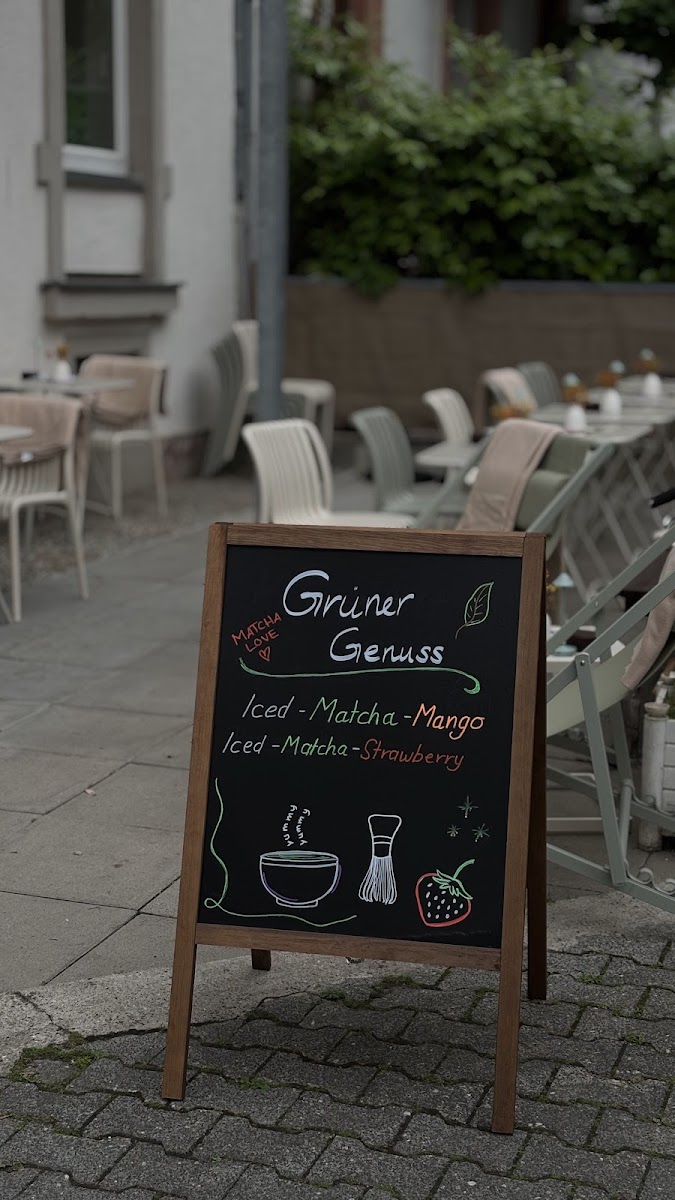 Grüner
Genuss
MATCHA
LOVE
Iced - Matcha - Mango
Iced - Matcha - Strawberry
Yummy
Yummy